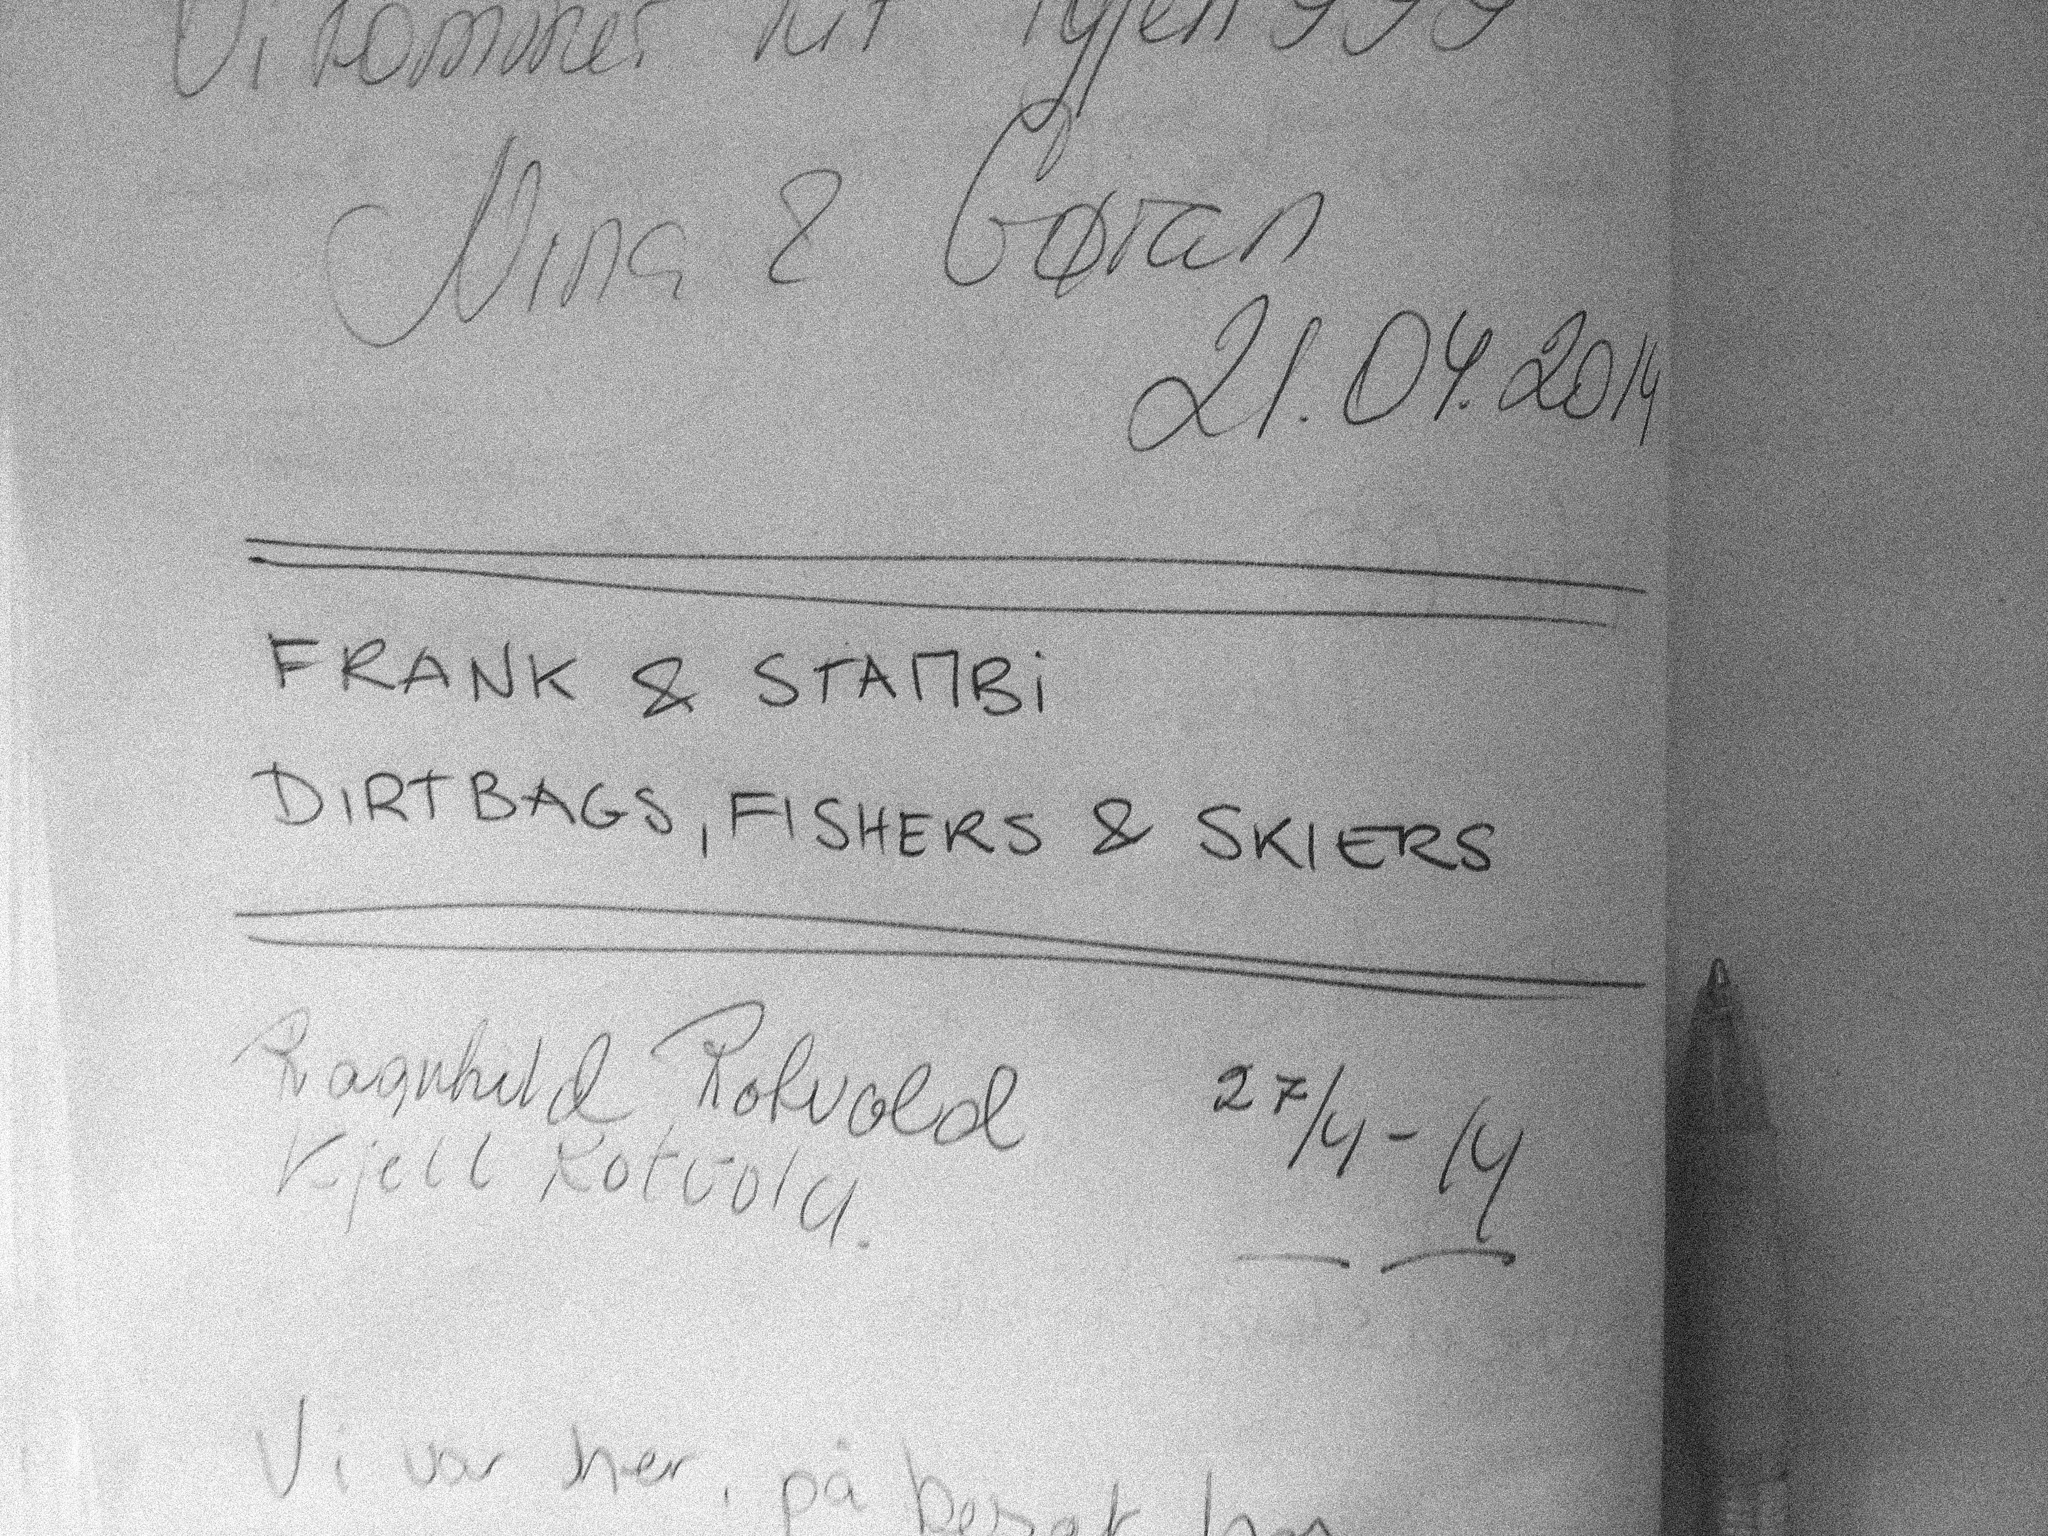 Vi kommer hit igjen
Nina & Gøran
21.04.2014
FRANK & STAMBi
DiRTBAGS, FISHERS & SKIERS
Ragnhild Rotvold 27/4-14
Kjell Rotvold.
Vi var her, på